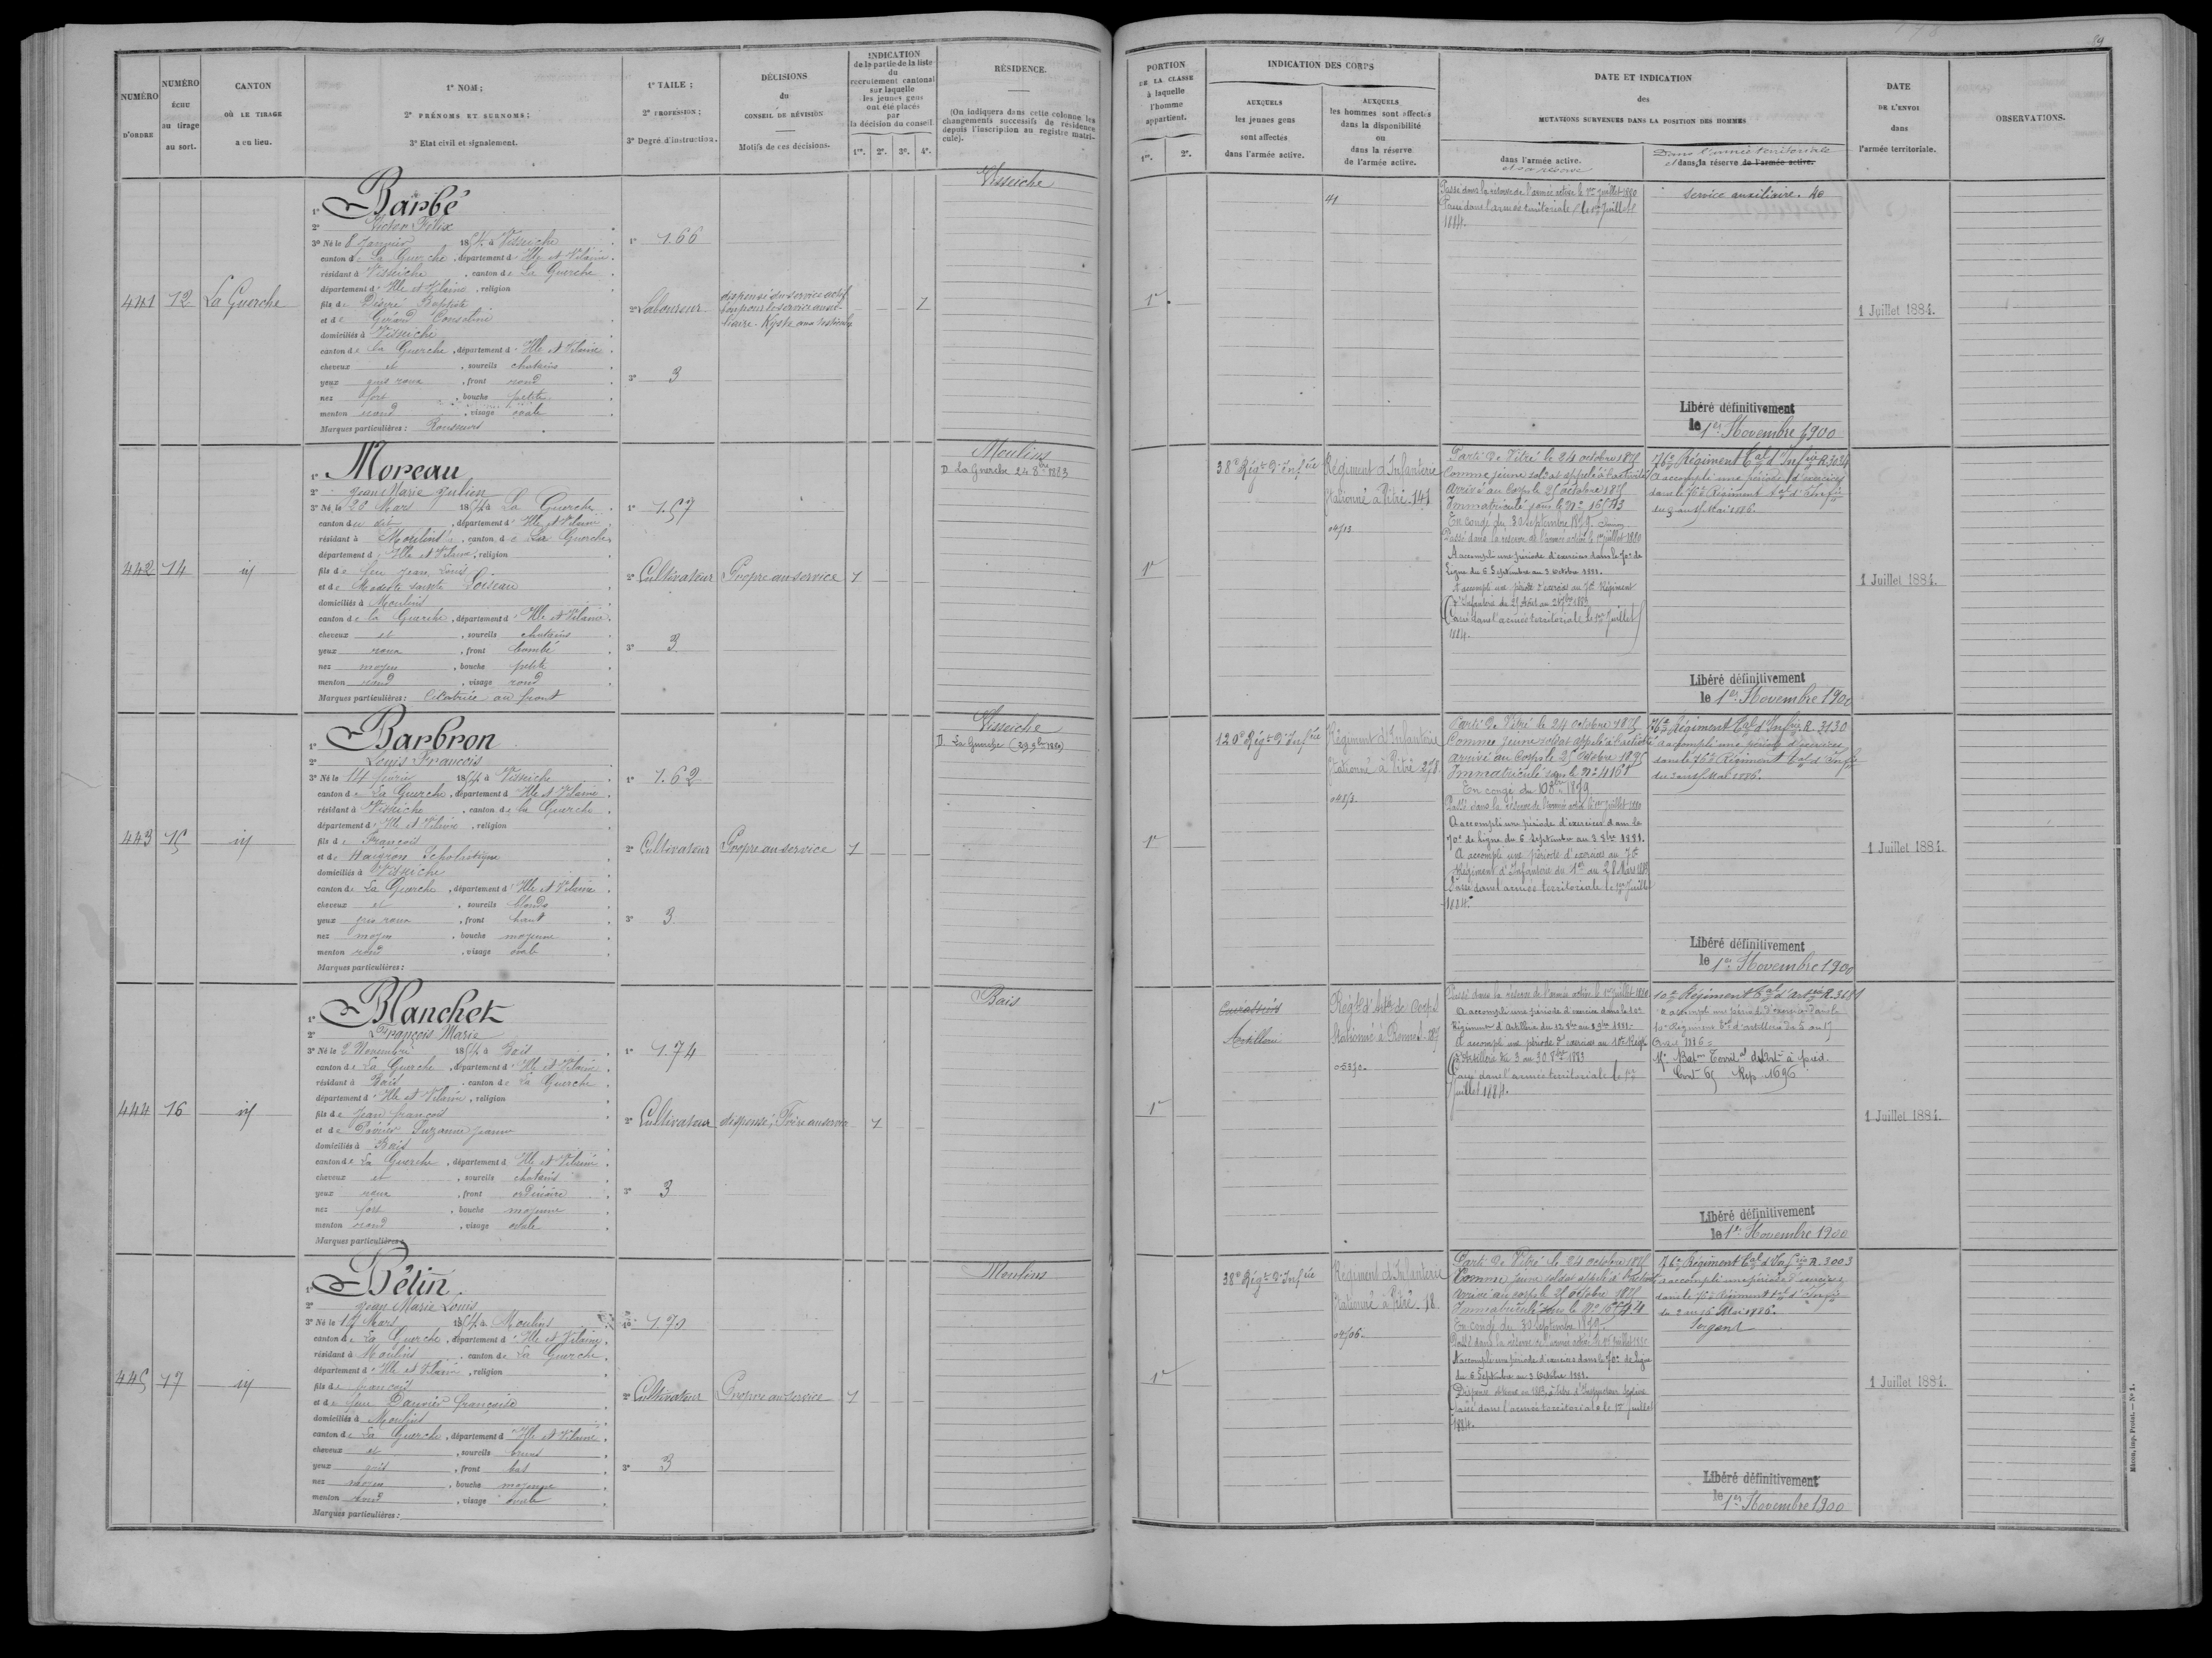 NUMÉRO D'ORDRE
NUMÉRO ÉCHU au tirage au sort.
CANTON OÙ LE TIRAGE a eu lieu.
1° NOM;
2° PRÉNOMS ET SURNOMS;
3° Etat civil et signalement.
1° TAILE;
2° PROFESSION;
3° Degré d'instruction.
DÉCISIONS du CONSEIL DE RÉVISION
Motifs de ces décisions.
INDICATION de la partie de la liste du recrutement cantonal sur laquelle les jeunes gens ont été placés par la décision du conseil
1re. 2e. 3e. 4e.
RÉSIDENCE.
(On indiquera dans cette colonne les changements successifs de résidence depuis l'inscription au registre matricule).
441 12 La Guerche
1° Barbé
2° Victor Félix
3° Né le 8 Janvier 1854 à Visseiche
canton de La Guerche, département d'Ille et Vilaine.
résidant à Visseiche, canton de La Guerche
département d'Ille et Vilaine, religion
fils de Désiré Baptiste
et de Gérard
domiciliés à Visseiche
canton de La Guerche, département d'Ille et Vilaine.
cheveux et, sourcils chatains
yeux gris roux, front rond
nez fort, bouche petite
menton rond, visage ovale
Marques particulières: Rousseurs
1° 1.66
2° Laboureur
3° 3
dispensé du service actif
bon pour le service auxi-
liaire. Kyste aux testicules
1
Visseiche
442 14 id
1° Moreau
2° Jean Marie Julien
3° Né le 20 Mars 1854 à La Guerche
canton du dit, département d'Ille et Vilaine
résidant à Moulins, canton de La Guerche
département d'Ille et Vilaine, religion
fils de feu Jean Louis
et de Modeste Loiseau
domiciliés à Moulins
canton de la Guerche, département d'Ille et Vilaine.
cheveux et, sourcils chatains
yeux roux, front bombé
nez moyen, bouche petite
menton rond, visage rond
Marques particulières: Cicatrice au front
1° 1.57
2° Cultivateur
3° 3
Propre au service
1
Moulins
D. La Guerche 24 8bre 1883
443 15 id
1° Barbron
2° Louis François
3° Né le 14 février 1854 à Visseiche
canton de La Guerche, département d'Ille et Vilaine
résidant à Visseiche, canton de la Guerche
département d'Ille et Vilaine, religion
fils de François
et de Haigron Scholastique
domiciliés à Visseiche
canton de La Guerche, département d'Ille et Vilaine
cheveux et, sourcils blonds
yeux gris roux, front haut
nez moyen, bouche moyenne
menton rond, visage ovale
Marques particulières:
1° 1.62
2° Cultivateur
3° 3
Propre au service
1
Visseiche
D. La Guerche
444 16 id
1° Blanchet
2° François Marie
3° Né le 2 Novembre 1854 à Bais
canton de La Guerche, département d'Ille et Vilaine
résidant à Bais, canton de La Guerche
département d'Ille et Vilaine, religion
fils de Jean françois
et de Suzanne Jeanne
domiciliés à Bais
canton de La Guerche, département d'Ille et Vilaine
cheveux et, sourcils chatains
yeux roux, front ordinaire
nez fort, bouche moyenne
menton rond, visage ovale
Marques particulières:
1° 1.74
2° Cultivateur
3° 3
dispensé, Frère au service
1
Bais
445 17 id
1° Bétin
2° Jean Marie Louis
3° Né le 19 Mars 1854 à Moulins
canton de La Guerche, département d'Ille et Vilaine
résidant à Moulins, canton de La Guerche
département d'Ille et Vilaine, religion
fils de françois
et de feu Dauvier françoise
domiciliés à Moulins
canton de La Guerche, département d'Ille et Vilaine
cheveux et, sourcils bruns
yeux gris, front bas
nez moyen, bouche moyenne
menton rond, visage ovale
Marques particulières:
1° 1.70
2° Cultivateur
3° 3
Propre au service
1
Moulins
89
PORTION DE LA CLASSE à laquelle l'homme appartient.
1re. 2e.
INDICATION DES CORPS
AUXQUELS les jeunes gens sont affectés dans l'armée active.
AUXQUELS les hommes sont affectés dans la disponibilité ou dans la réserve de l'armée active.
DATE ET INDICATION des MUTATIONS SURVENUES DANS LA POSITION DES HOMMES
dans l'armée active.
et sa réserve
Dans l'armée territoriale
et dans sa réserve de l'armée active.
DATE DE L'ENVOI dans l'armée territoriale.
OBSERVATIONS.
1re
41
Passé dans la réserve de l'armée active le 1er juillet 1880
Passé dans l'armée territoriale le 1er Juillet
1884.
service auxiliaire.
Libéré définitivement
le 1er Novembre 1900
1 Juillet 1884.
1re
38e Régt d'Infie
Régiment d'Infanterie
stationné à Vitré. 141
Parti de Vitré le 24 octobre 1875
Comme jeune soldat appelé à l'activité
Arrivé au Corps le 25 octobre 1875
Immatriculé sous le No
En congé du 30 Septembre 1879.
Passé dans la réserve de l'armée active le 1er juillet 1880
A accompli une période d'exercices dans le 70e de
Ligne du 6 Septembre au 3 Octobre 1881.
A accompli une période d'exercices au 70e Régiment
d'Infanterie du 27 Août au
Passé dans l'armée territoriale le 1er Juillet
1884.
76e Régiment tal d'Infie R. 3034
A accompli une période d'exercices
dans le 76e Régiment tal d'Infie
du 3 au 15 Mai 1886.
Libéré définitivement
le 1er Novembre 1900
1 Juillet 1884.
1re
120e Régt d'Infie
Régiment d'Infanterie
stationné à Vitré 278
Parti de Vitré le 24 octobre 1875
Comme jeune soldat appelé à l'activité
arrivé au Corps le 25 Octobre 1875
Immatriculé sous le No 4161
En congé du 1879
Passé dans la réserve de l'armée active le 1er juillet 1880
A accompli une période d'exercices dans le
70e de ligne du 6 septembre au 3 8bre 1881.
A accompli une période d'exercices au 70e
Régiment d'Infanterie du 1er au 28 Mars
Passé dans l'armée territoriale le 1er Juillet
1884.
76e Régiment tal d'Infie R. 3130
a accompli une période d'exercices
dans le 76e Régiment tal d'Infie
du 3 au 15 Mai 1886.
Libéré définitivement
le 1er Novembre 1900
1 Juillet 1884.
1re
Cuirassiers
Artillerie
Régt d'Artie de Corps
stationné à Rennes
Passé dans la réserve de l'armée active le 1er juillet 1880
A accompli une période d'exercices dans le 10e
Régiment d'Artillerie du 12 8bre au 8 9bre 1881.
A accompli une période d'exercices au 10e Régt
d'Artillerie du 3 au 30 8bre 1883
Passé dans l'armée territoriale le 1er
juillet 1884.
10e Régiment tal d'Artie R.
A accompli une période d'exercices dans le
10e Régiment tal d'artillerie du 5 au 17
1886
Baton Territal d'Artie à pied.
Rep. 1696
Libéré définitivement
le 1er Novembre 1900
1 Juillet 1884.
1re
38e Régt d'Infie
Régiment d'Infanterie
stationné à Vitré. 18
Parti de Vitré le 24 octobre 1875
Comme jeune soldat appelé à l'activité
arrivé au corps le 25 octobre 1875
Immatriculé sous le No
En congé du 30 septembre 1879.
Passé dans la réserve de l'armée active le 1er Juillet
A accompli une période d'exercices dans le 70e de ligne
du 6 Septembre au 3 Octobre 1881.
Dispense obtenue en 1883, à titre d'
Passé dans l'armée territoriale le 1er juillet
1884.
76e Régiment tal d'Infie R. 3003
a accompli une période d'exercices
dans le 76e Régiment tal d'Infie
du 2 au 16 Mai 1886.
Sergent
Libéré définitivement
le 1er Novembre 1900
1 Juillet 1884.